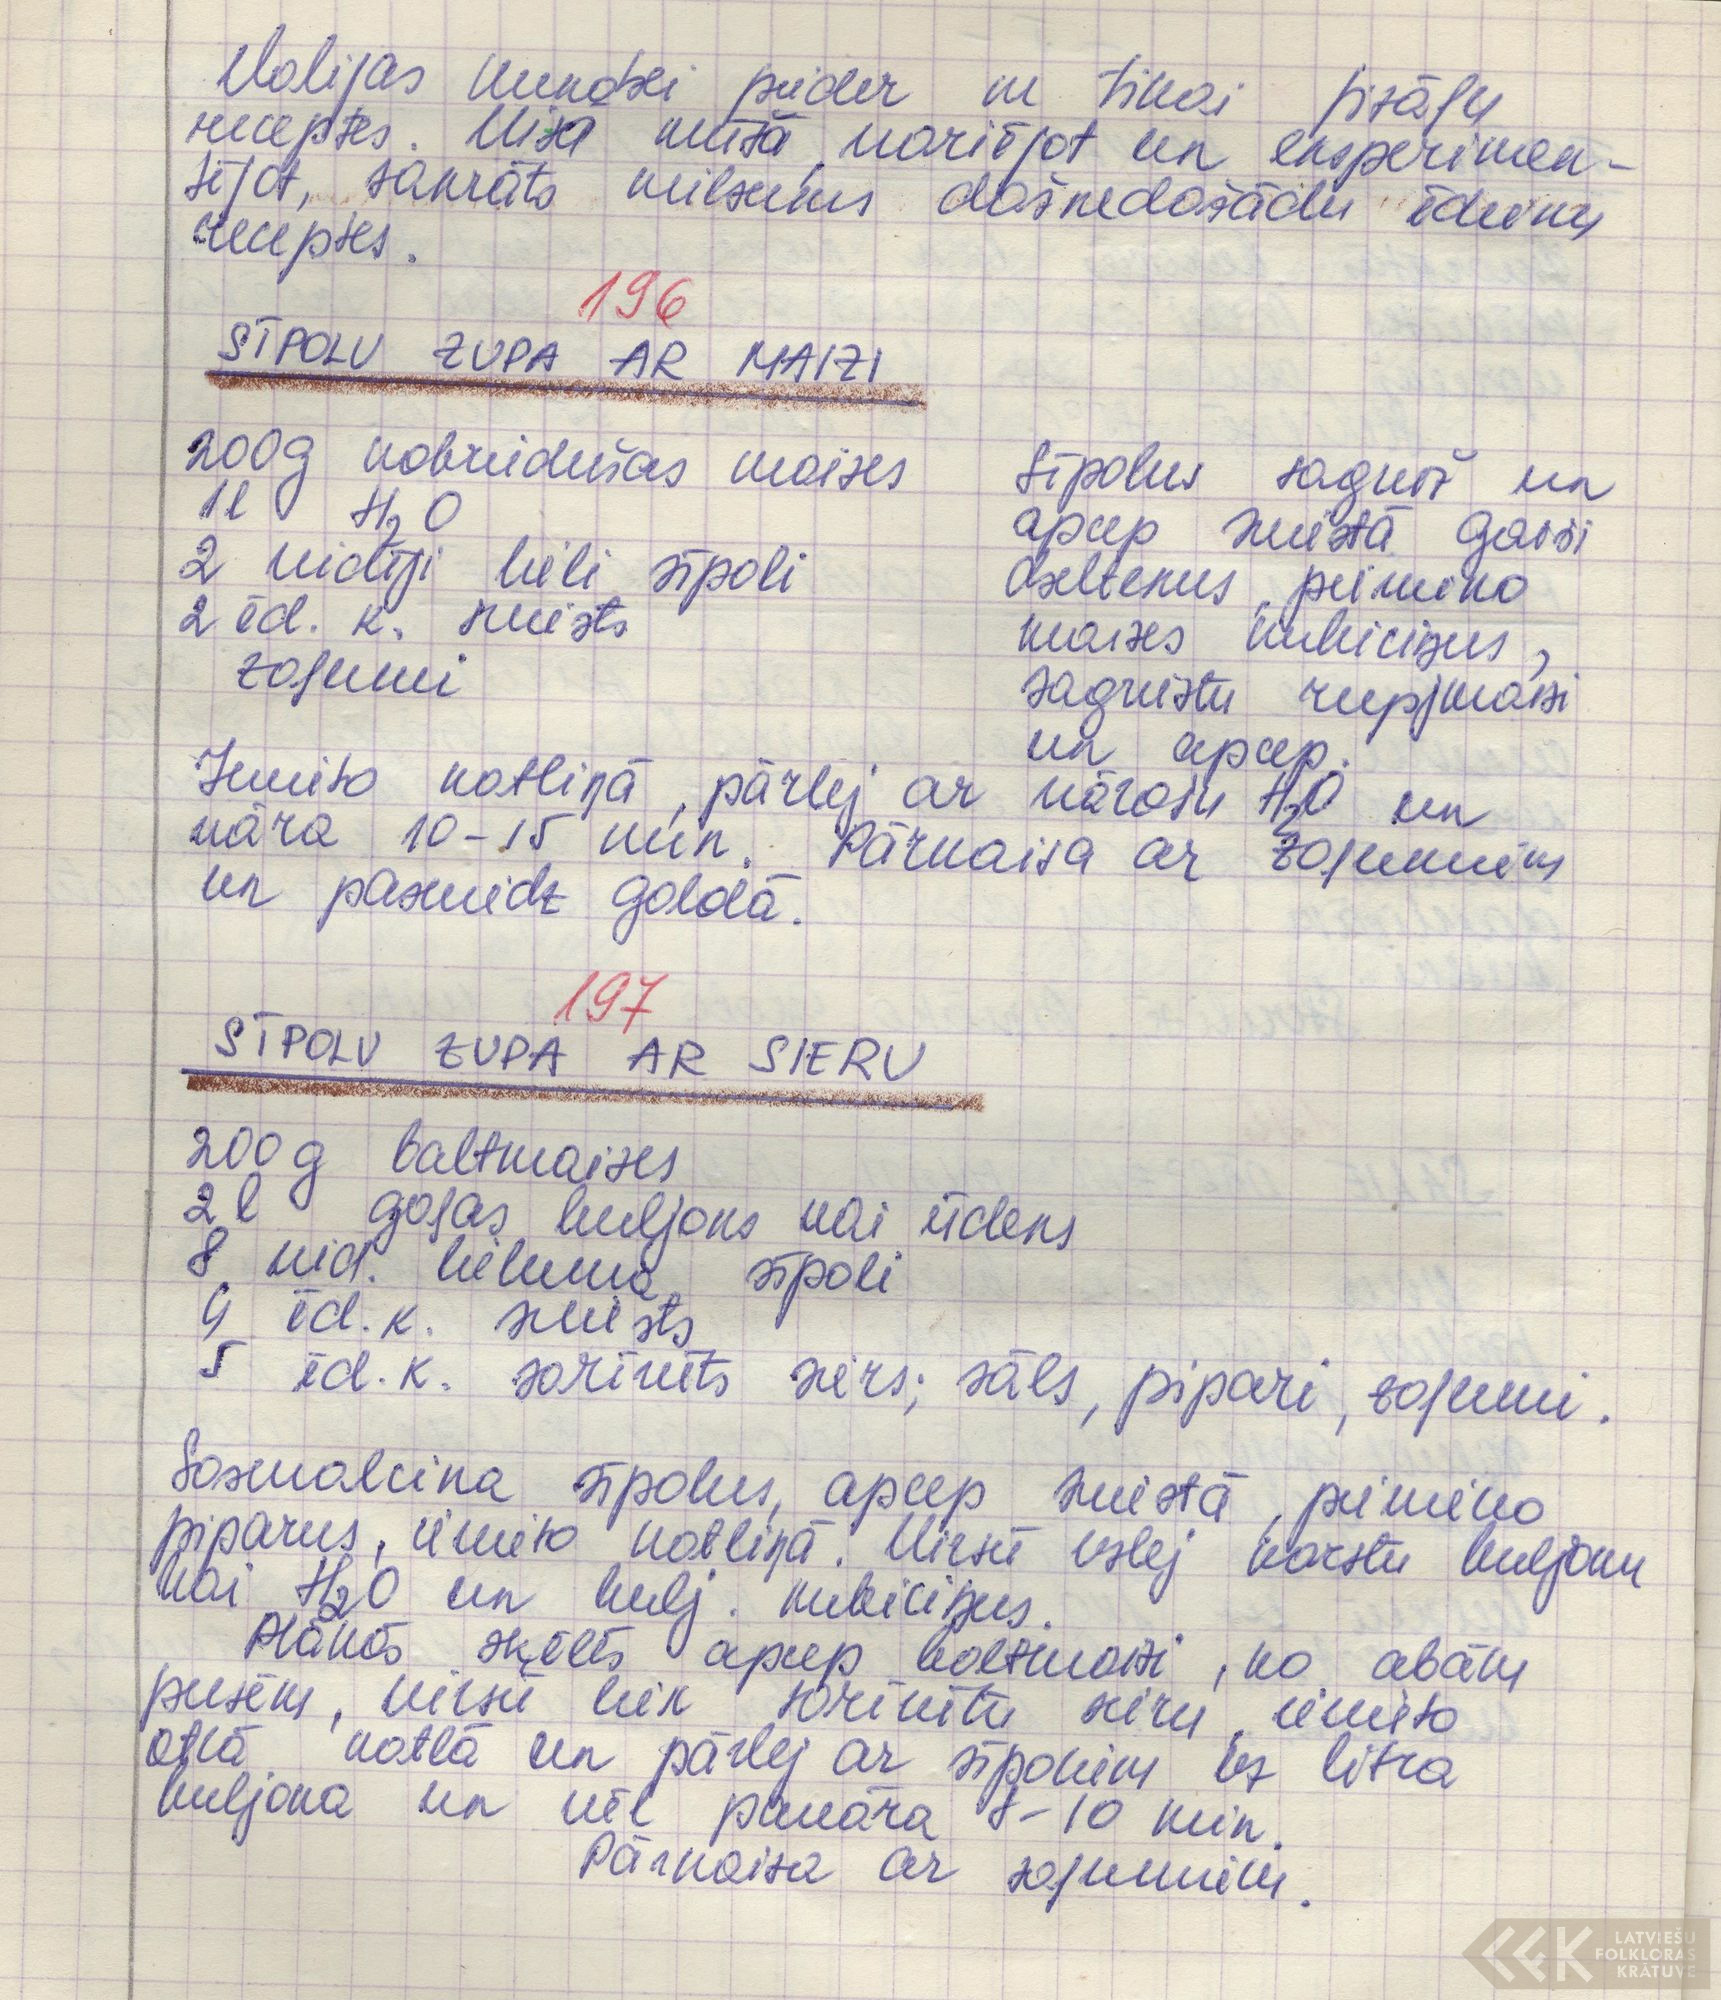 Valijas kundzei pieder ne tikai tizāļu
receptes. Visā mūžā, vārījot un eksperimen-
tējot, sakrāts milzums dažnedažādu ēdienu
receptes.
196
SĪPOLU ZUPA AR MAIZI
200g nobriedušas maizes
1l H2O
2 vidēji lieli sīpoli
2 ēd. k. sviests
zaļumi
Sīpolus sagriež un
apcep sviestā gaiši
dzeltenus, pievieno
maizes kubiciņus,
sagrieztu rupjmaizi
un apcep.
Iemet katliņā, pārlej ar vārošu H2O un
vāra 10-15 min. Pārkaisa ar zaļumiem
un pasniedz galdā.
197
SĪPOLU ZUPA AR SIERU
200g baltmaizes
2l gaļas buljons vai ūdens
8 vid. lieluma sīpoli
4 ēd. k. sviests
5 ēd. k. sarīvēts siers; sāls, pipari, zaļumi.
Sasmalcina sīpolus, apcep sviestā, pievieno
piparus, iemet katliņā. Virsū uzlej karstu buljonu
vai H2O un bulj. kubiciņus.
Plānās šķēlēs apcep baltmaizi, no abām
pusēm, virsū liek sarīvētu sieru, iemet
otrā katlā un pārlej ar sīpoliem uz litra
buljona un vēl pavāra 8-10 min.
Pārkaisa ar zaļumiem.
LATVIEŠU
FOLKLORAS
KRĀTUVE